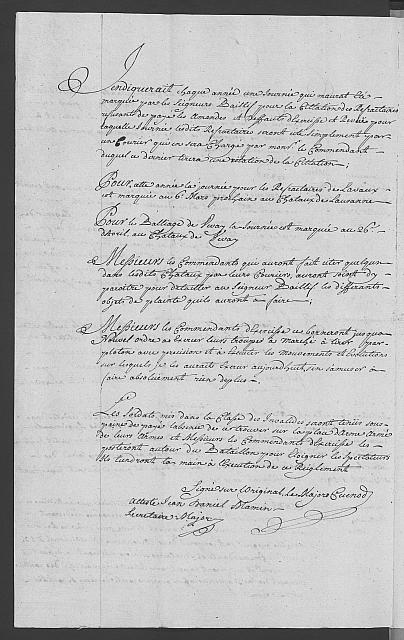 Jindiquerait chaque année une Journée qui maurat été
marquée par les Seigneurs Baillifs pour la Citation des Refractaires
refusants de payé les Amandes et deffauts d'Exercise et Revüe pour
laquelle Journée lesdits Refractaires seront cité simplement par
un Courier qui en sera Chargé par monsr. le Commandant
duquel ce dernier tirera une rélation de la Citation ;
Pour cette année la journée pour les Refractaires de Lavaux
est marquée au 6e Mars prochain au Chataux de Lausanne
Pour le Balliage de Vivay la Journée est marquée au 26e
d'Avril au Chataux de Vivay
Messieurs les Commandants qui auront fait citer quelqun
dans lesdits Chataux par leurs Couriers, auront soin d'y
paroitre pour detailler au Seigneur Baillif les differants
objets de plainte quils auront à faire ;
Messieurs les Commandants d'Exercise se borneront jusqua
Nouvel ordre a Exercer leurs trouppes à marché à tirer par
plotons avec precision et à Executer les Mouvements et Evolutions
sur lesquels je les aurait Exercer aujourdhuit, sans amuser à
faire absoluement rien de plus
Les Soldats mis dans la Classe des Invalides seront tenus sous
peine de payé l'amende de se trouver sur la place d'Arme Armés
de leurs Armes et Messieurs les Commandants d'Exercise les
posteront autour du Bataillon pour Eloigner les Spectateurs
Ils tiendront la main à l'Execution de ce Réglement
Signé sur l'Original, le Major Cuenod
atteste Jean Daniel Mamin
Secretaire Major